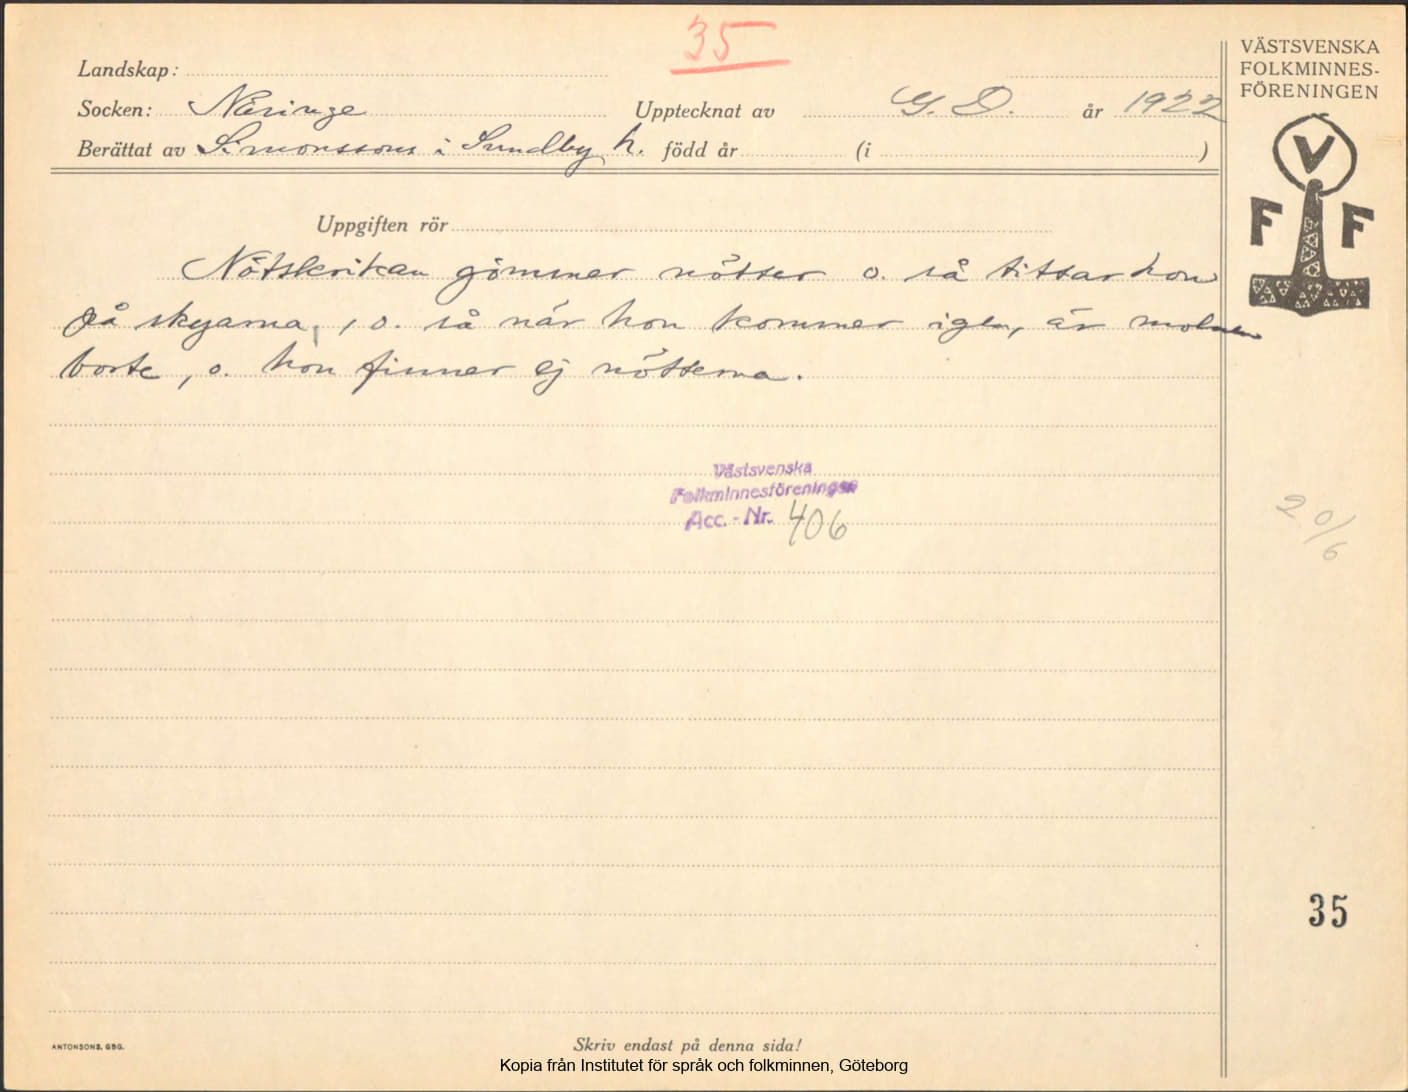 35
VÄSTSVENSKA
FOLKMINNES-
FÖRENINGEN
Landskap:
Socken: Näsinge Upptecknat av G. D. år 1922
Berättat av Simonssons i Sundby N. född år (i )
V
F F
Uppgiften rör
Nötskrikan gömmer nötter o. så tittar hon
på skyarna, o. så när hon kommer igen, är molnen
borte, o. hon finner ej nötterna.
Västsvenska
Folkminnesföreningen
Acc. - Nr. 406
20/6
35
ANTONSONS, GBG.
Skriv endast på denna sida!
Kopia från Institutet för språk och folkminnen, Göteborg